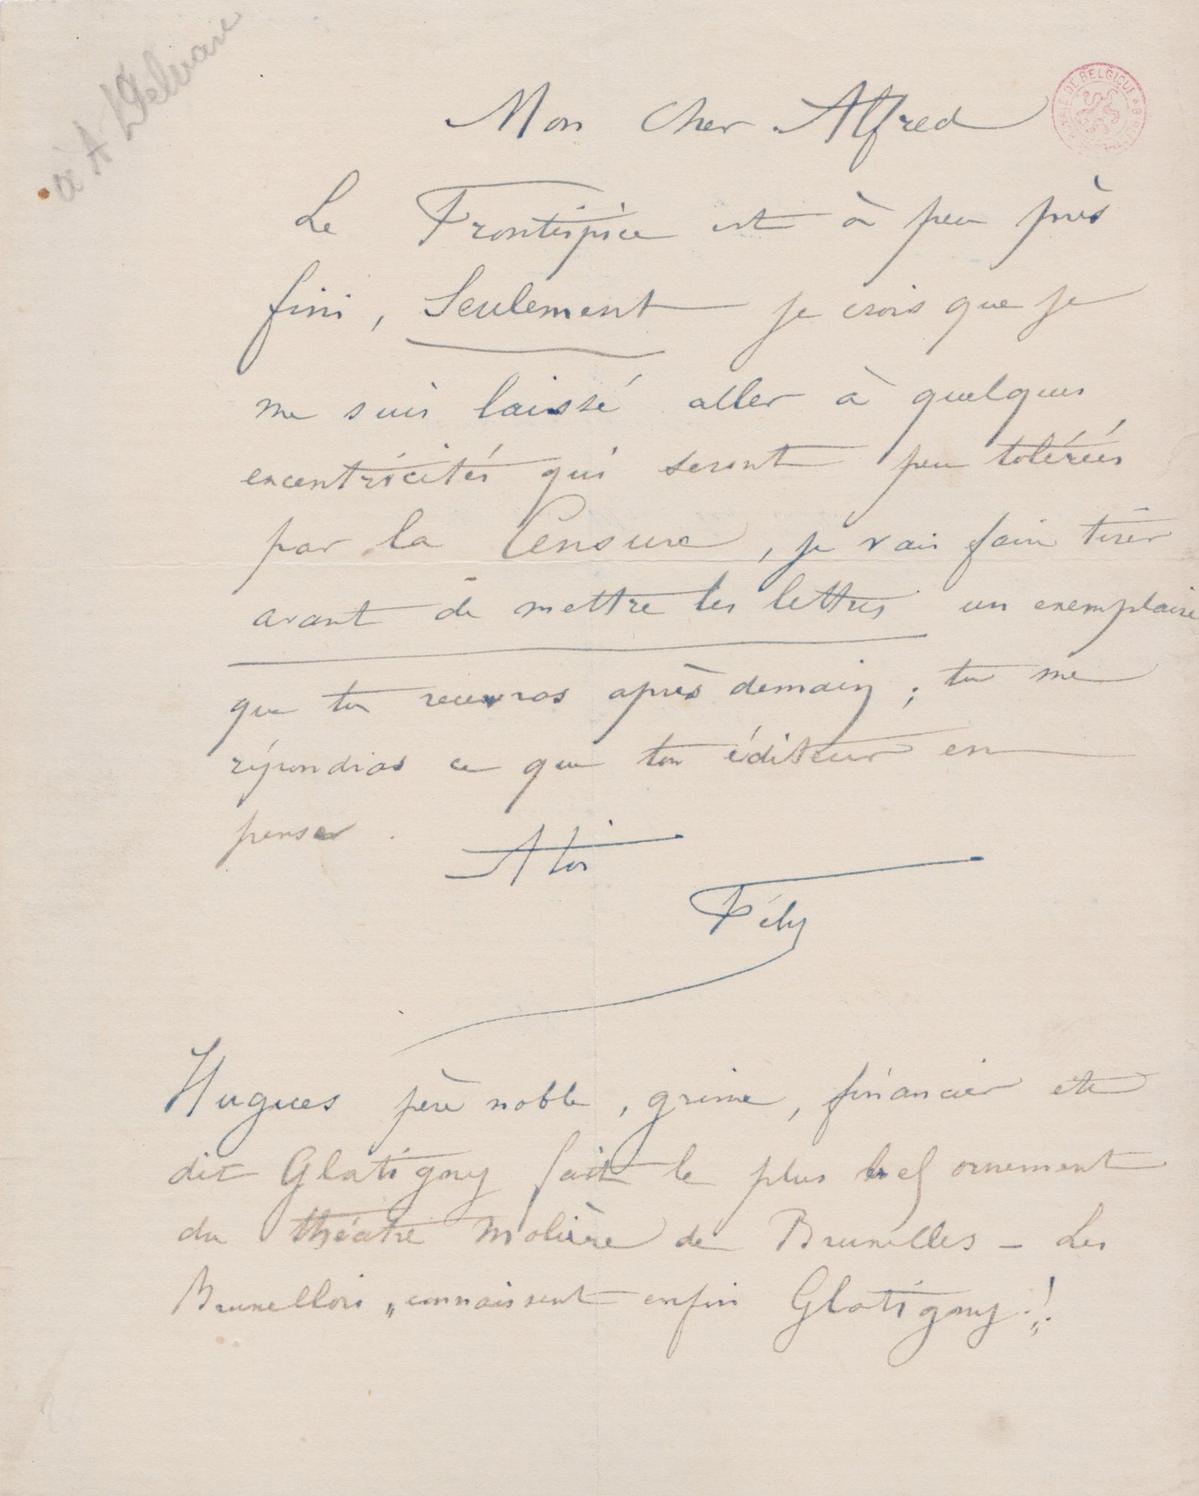 à A Delvau
Mon cher Alfred
Le Frontispice est à peu près
fini, Seulement je crois que je
me suis laissé aller à quelques
excentricités qui seront peu tolérées
par la Censure, je vais faire tirer
avant de mettre les lettres un exemplaire
que tu recevras après demain ; tu me
répondras ce que ton éditeur en
pense.
A toi
Fély
Hugues père noble, grime, financier etc
dit Glatigny fait le plus bel ornement
du théatre Molière de Bruxelles – Les
Bruxellois „connaissent enfin Glatigny!„